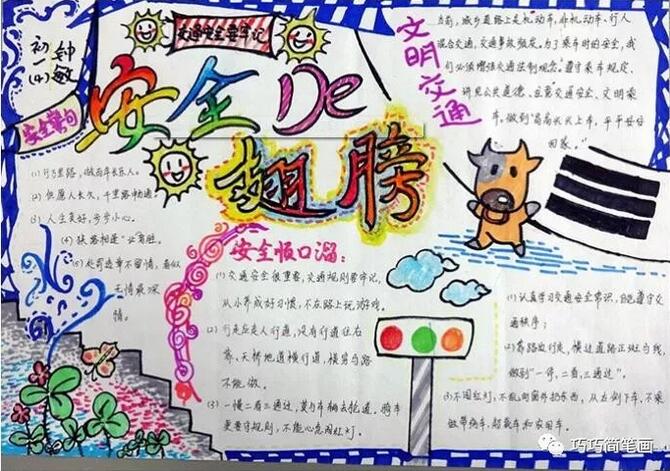 交通安全要牢记
初一(4)
钟敏
安全De
翅膀
安全警句
(1) 行万里路,做百年长乐人。
(2) 但愿人长久,千里路畅通。
(3) 人生美好,步步小心。
(4) 狭路相逢"让"者胜。
(5) 处罚违章不留情,看似
无情最深
情。
安全顺口溜:
(1) 交通安全很重要,交通规则要牢记,
从小养成好习惯,不在路上玩游戏。
(2) 行走应走人行道,没有行道往右
靠,天桥地道横行道,横穿马路
不能做。
(3) 一慢二看三通过,莫与车辆去抢道。骑车
更要守规则,不能心急闯红灯。
文明交通
当前,城乡道路上是机动车、非机动车、行人
混合交通,交通事故频发。为了乘车时的安全,我
们必须增强交通法制观念。遵守乘车规定、
讲究公共道德、注意交通安全、文明乘
车,做到"高高兴兴上车,平平安安
回家。"
(1) 认真学习交通安全常识,自觉遵守交
通秩序;
(2) 靠路边行走,横过道路走斑马线,
做到"一停,二看,三通过"。
(3) 不闯红灯,不乱向窗外扔东西,从右侧下车,不乘
坐带病车、超载车和农用车。
巧巧简笔画